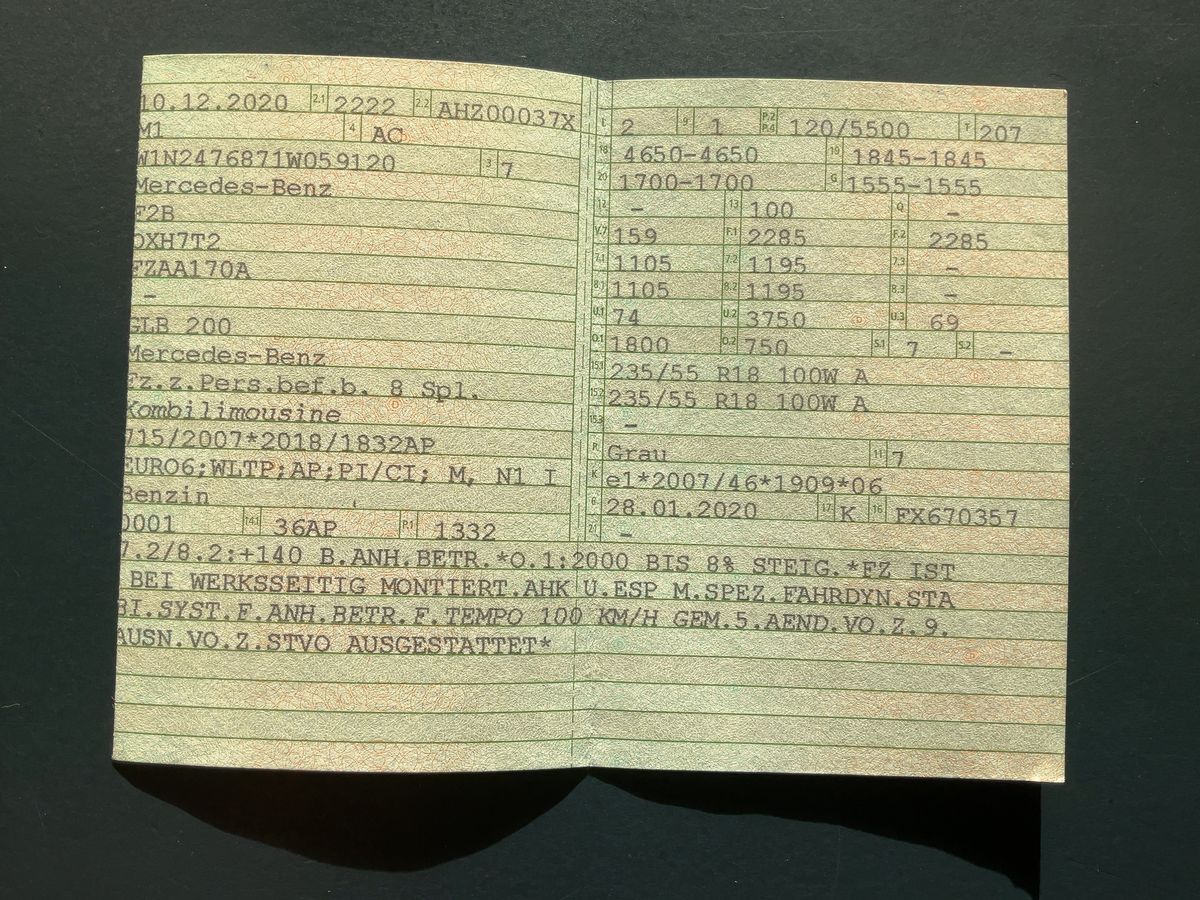 10.12.2020 2.1 2222 2.2 AHZ00037X
M1 4 AC
W1N2476871W059120 3 7
Mercedes-Benz
F2B
OXH7T2
FZAA170A
–
GLB 200
Mercedes-Benz
Fz.z.Pers.bef.b. 8 Spl.
Kombilimousine
715/2007*2018/1832AP
EURO6;WLTP;AP;PI/CI; M, N1 I
Benzin
0001 14.1 36AP P.1 1332
L 2 9 1 P.2 P.4 120/5500 T 207
18 4650-4650 19 1845-1845
20 1700-1700 G 1555-1555
12 – 13 100 Q –
V.7 159 F.1 2285 F.2 2285
7.1 1105 7.2 1195 7.3 –
8.1 1105 8.2 1195 8.3 –
U.1 74 U.2 3750 U.3 69
O.1 1800 O.2 750 S.1 7 S.2 –
15.1 235/55 R18 100W A
15.2 235/55 R18 100W A
15.3 –
R Grau 11 7
K e1*2007/46*1909*06
6 28.01.2020 17 K 16 FX670357
21 –
7.2/8.2:+140 B.ANH.BETR.*O.1:2000 BIS 8% STEIG.*FZ IST
BEI WERKSSEITIG MONTIERT.AHK U.ESP M.SPEZ.FAHRDYN.STA
BI.SYST.F.ANH.BETR.F.TEMPO 100 KM/H GEM.5.AEND.VO.Z.9.
AUSN.VO.Z.STVO AUSGESTATTET*